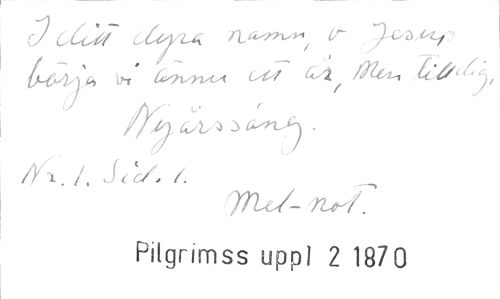 I ditt dyra namn, o Jesu,
börja vi ännu ett år, Men till dig,
Nyårssång.
Nr. 1. Sid. 1.
Mel-not.
Pilgrimss uppl 2 1870